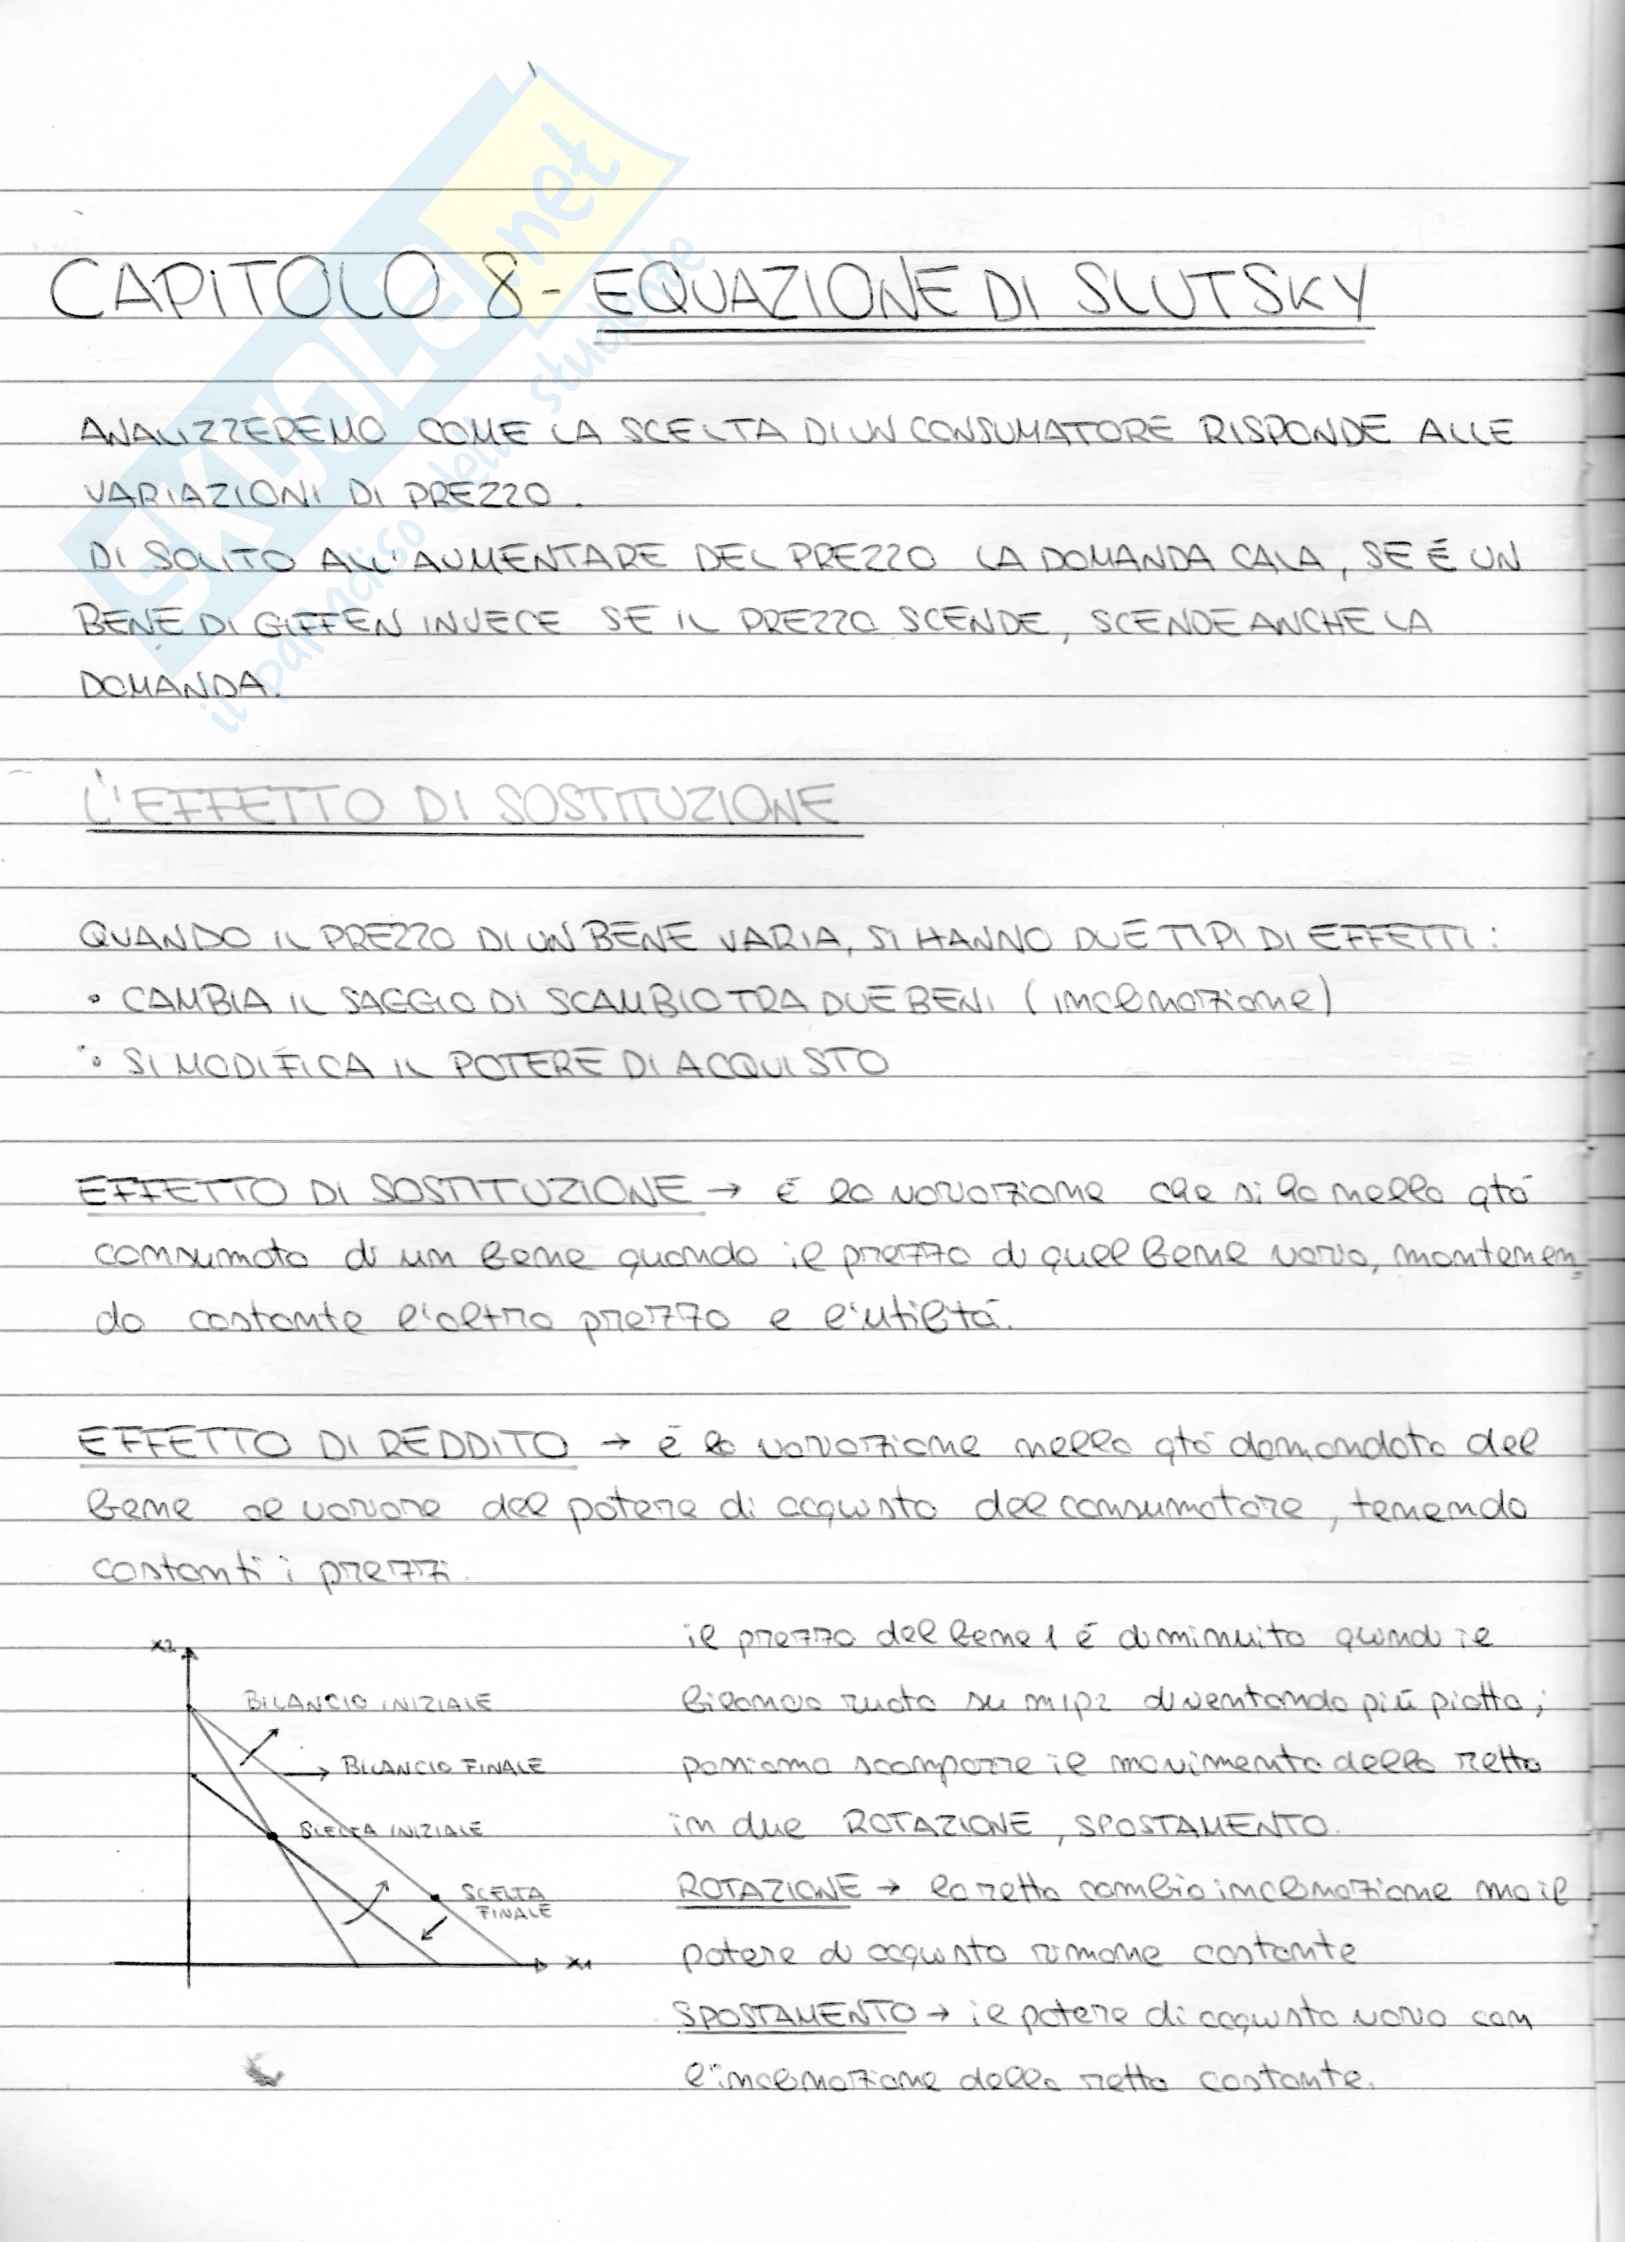 SKUOLA.net
il paradiso dello studente
CAPITOLO 8 - EQUAZIONE DI SLUTSKY
ANALIZZEREMO COME LA SCELTA DI UN CONSUMATORE RISPONDE ALLE
VARIAZIONI DI PREZZO.
DI SOLITO ALL'AUMENTARE DEL PREZZO LA DOMANDA CALA, SE É UN
BENE DI GIFFEN INVECE SE IL PREZZO SCENDE, SCENDE ANCHE LA
DOMANDA.
L'EFFETTO DI SOSTITUZIONE
QUANDO IL PREZZO DI UN BENE VARIA, SI HANNO DUE TIPI DI EFFETTI:
• CAMBIA IL SAGGIO DI SCAMBIO TRA DUE BENI (inclinazione)
• SI MODIFICA IL POTERE DI ACQUISTO
EFFETTO DI SOSTITUZIONE → é la variazione che si ha nella qtá
consumata di un bene quando il prezzo di quel bene varia, mantenen=
do costante l'altro prezzo e l'utilitá.
EFFETTO DI REDDITO → é la variazione nella qtá domandata del
bene al variare del potere di acquisto del consumatore, tenendo
costanti i prezzi.
il prezzo del bene 1 é diminuito quindi il
bilancio ruota su m/p2 diventando piú piatto;
possiamo scomporre il movimento della retta
in due ROTAZIONE, SPOSTAMENTO.
ROTAZIONE → la retta cambia inclinazione ma il
potere di acquisto rimane costante
SPOSTAMENTO → il potere di acquisto varia con
l'inclinazione della retta costante.
x2
BILANCIO INIZIALE
BILANCIO FINALE
SCELTA INIZIALE
SCELTA
FINALE
x1